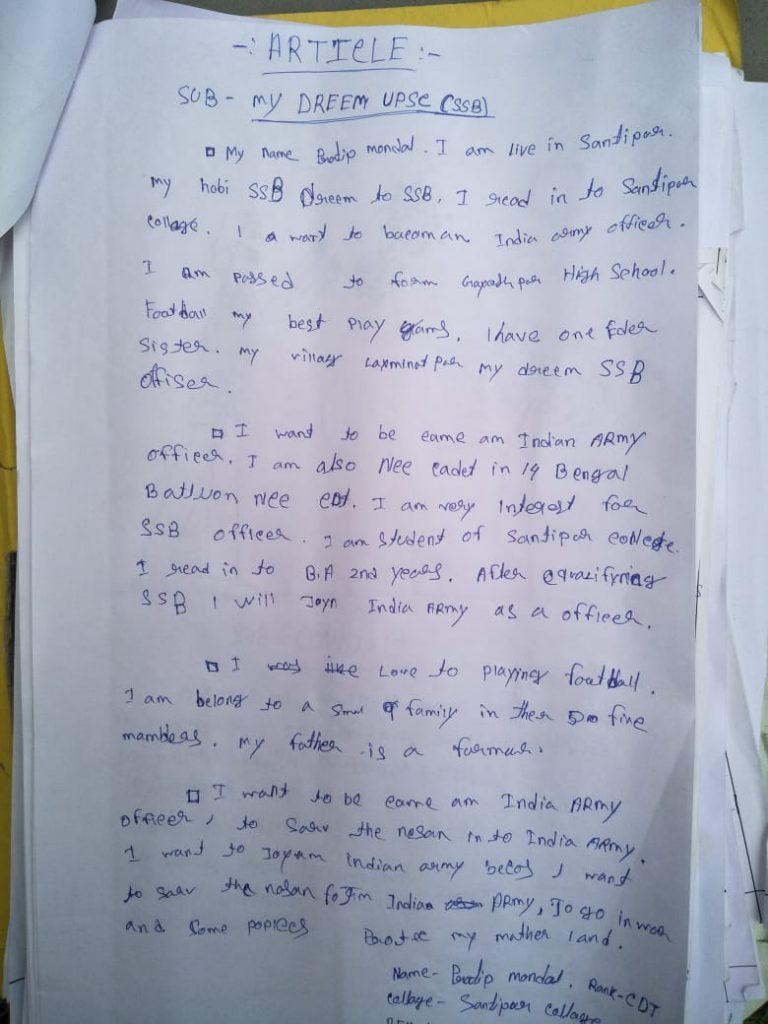 -: ARTICLE :-
SUB - MY DREEM UPSC (SSB)
My name Pradip mondal. I am live in Santipar.
my hobi SSB Dreem to SSB. I read in to Santipar
collage. I a want to bacoman India army officer.
I am passed to form High School.
Football my best Play gams. I have one
Sister. my villag Laxminatpar my dreem SSB
offiser.
I want to be came am Indian ARMY
officer. I am also Ncc cadet in 14 Bengal
Ncc I am very Interest for
SSB officer. I am student of Santipar
I read in to B.A 2nd years. After
SSB I will Joyn India ARMY as a officer.
I Love to playing football.
I am belong to a family in ther five
mambers. my father is a farmar.
I want to be came am India ARMY
officer, to sarv the nesan in to India ARMY.
I want to Indian army becos I want
to sarv the nasan Indian ARMY, To go in war
and Some my mather land.
Name - Pradip mondal. Rank - CDT
collage - Santipar collage